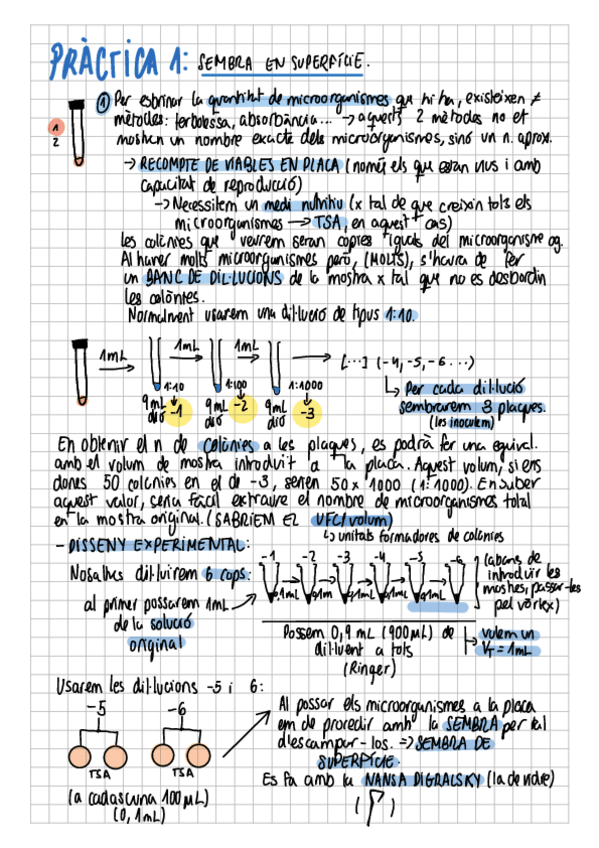 PRÀCTICA 1: SEMBRA EN SUPERFÍCIE.
① Per esbrinar la quantitat de microorganismes que hi ha, existeixen ≠
mètodes: terbolessa, absorbància... → aquests 2 mètodes no et
mostren un nombre exacte dels microorganismes, sinó un n. aprox.
1
2
→ RECOMPTE DE VIABLES EN PLACA (només els que estan vius i amb
capacitat de reproducció)
→ Necessitem un medi nutritiu (x tal de que creixin tots els
microorganismes → TSA, en aquest cas)
les colònies que veurem seran copies iguals del microorganisme og.
Al haver molts microorganismes però, (MOLTS), s'haurà de fer
un BANC DE DIL·LUCIONS de la mostra x tal que no es desbordin
les colònies.
Normalment usarem una dil·lució de tipus 1:10.
1mL → 1mL → 1mL → [...] (-4,-5,-6...)
1:10 1:100 1:1000
9mL dió -1 9mL dió -2 9mL dió -3
↳ Per cada dil·lució
sembrarem 3 plaques.
(les inoculem)
En obtenir el n de colònies a les plaques, es podrà fer una equival.
amb el volum de mostra introduït a la placa. Aquest volum, si ens
dones 50 colònies en el de -3, serien 50 x 1000 (1:1000). En saber
aquest valor, seria fàcil extraure el nombre de microorganismes total
en la mostra original. (SABRIEM EL UFC/volum)
↳ unitats formadores de colònies
- DISSENY EXPERIMENTAL:
-1 -2 -3 -4 -5 -6
Nosaltres dil·luirem 6 cops:
0,1mL 0,1mL 0,1mL 0,1mL 0,1mL
(abans de
introduir les
mostres, passar-les
pel vòrtex)
al primer possarem 1mL
de la solució
original
Possem 0,9 mL (900µL) de
dil·luent a tots
(Ringer)
→ volem un
VT = 1mL
Usarem les dil·lucions -5 i 6:
-5 -6
TSA TSA
(a cadascuna 100µL)
(0,1mL)
Al possar els microorganismes a la placa
em de procedir amb la SEMBRA per tal
d'escampar-los. => SEMBRA DE
SUPERFÍCIE.
Es fa amb la NANSA DIGRALSKY (la de vidre)
( )